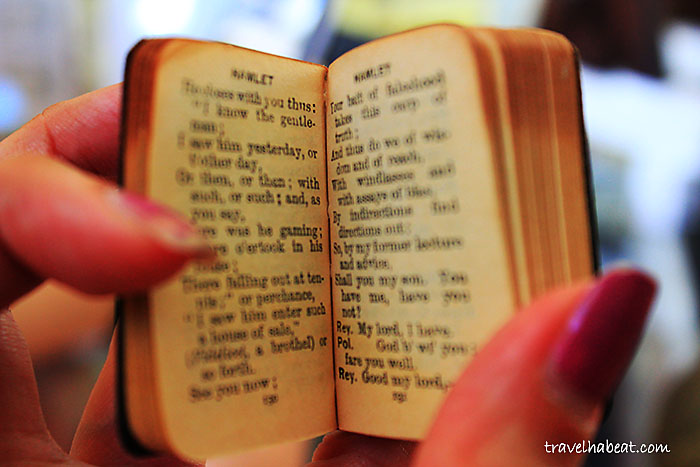 HAMLET
closes with you thus:
"I know the gentle-
man;
I saw him yesterday, or
t'other day,
Or then, or then; with
such, or such; and, as
you say,
was he gaming;
o'ertook in his
There falling out at ten-
nis;" or perchance,
"I saw him enter such
a house of sale,"
(Videlicet, a brothel) or
so forth.
See you now;
HAMLET
Your bait of falsehood
takes this carp of
truth:
And thus do we of wis-
dom and of reach,
With windlasses and
with assays of bias,
By indirections find
directions out:
So, by my former lecture
and advice,
Shall you my son. You
have me, have you
not?
Rey. My lord, I have.
Pol. God b' wi' you;
fare you well.
Rey. Good my lord,
travelhabeat.com